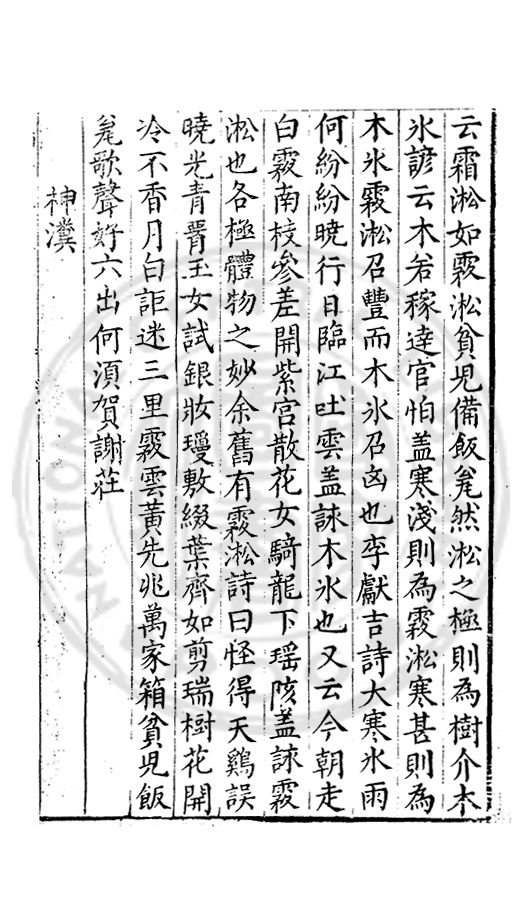 云霜淞如霧淞貧児備飯瓮然淞之極則為樹介木
氷諺云木若稼達官怕盖寒淺則為霧淞寒甚則為
木氷霧淞召豐而木氷召凶也李獻吉詩大寒氷雨
何紛紛曉行日臨江吐雲盖詠木氷也又云今朝走
白霧南枝參差開紫宮散花女騎龍下瑤陔盖詠霧
淞也各極體物之妙余舊有霧淞詩曰怪得天鷄誤
曉光青胥玉女試銀妝瓊敷綴葉齊如剪瑞樹花開
冷不香月白詎迷三里霧雲黃先兆萬家箱貧児飯
瓮歌聲好六出何湏賀謝莊
神瀵